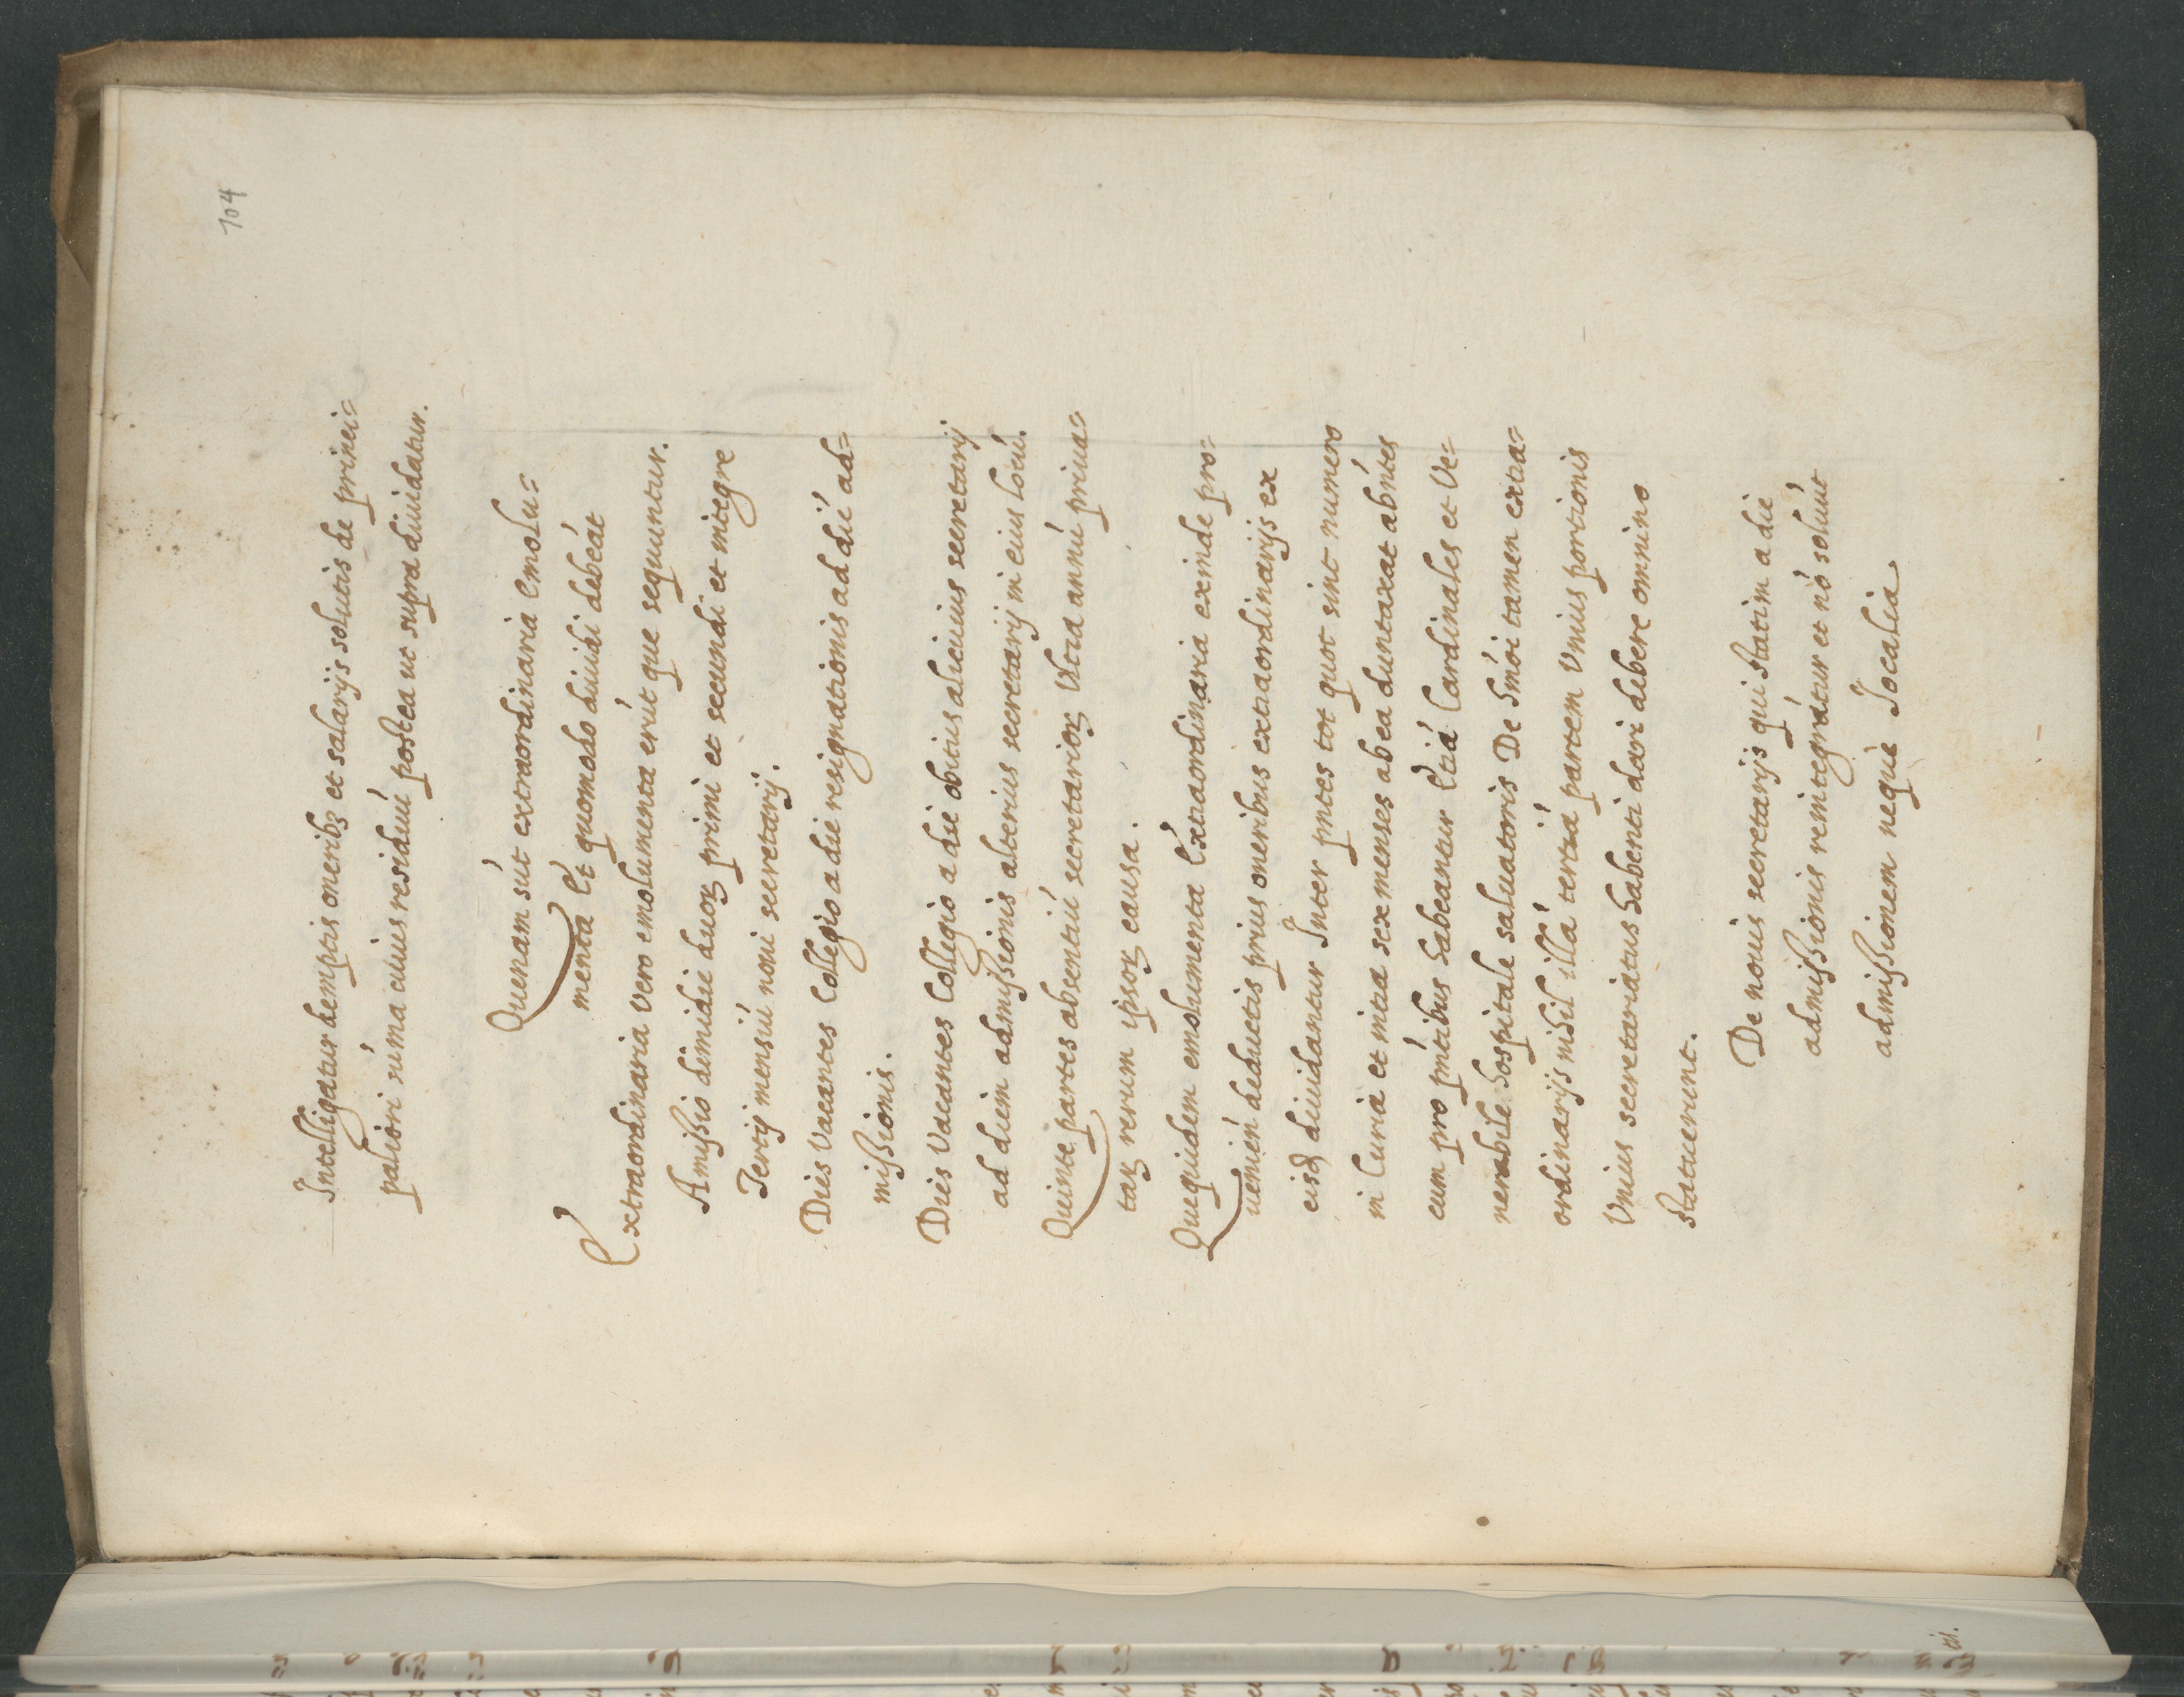 104
Intelligatur demptis oneribꝫ et salarijs solutis de princi=
paliori súma cuius residuú postea ut supra diuidatur.
Quenam sút extraordinaria emolu=
menta Et quomodo diuidi debeát
Extraordinaria Vero emolumenta erút que sequuntur.
Amißio dimidie duoꝝ primi et secundi et integre
Tertij mensiú noui secretarij.
Dies Vacantes Collegio a die resignationis ad dié ad=
mißionis.
Dies Vacantes Collegio a die obitus alicuius secretarij
ad diem admißionis alterius secretarij in eius locú.
Quinte partes absentiú secretarioꝝ Vltra annú priua=
taꝝ rerum ipsoꝝ causa.
Quequidem emolumenta Extraordinaria exinde pro=
uenień deductis prius oneribus extraordinarijs ex
eisd diuidantur Inter pntes tot quot sint numero
in Curia et intra sex menses ab ea duntaxat abńtes
cum pro pńtibus habeantur Etiá Cardinales et Ve=
nerabile hospitale saluatoris De Emolumentis tamen extra=
ordinarijs nihil illá tertiá partem Vnius portionis
Vnius secretariatus habenti dari debere omnino
statuerunt.
De nouis secretarijs qui statim a die
admißionis reintegrátur et nó soluút
admißionem neque Iocalia